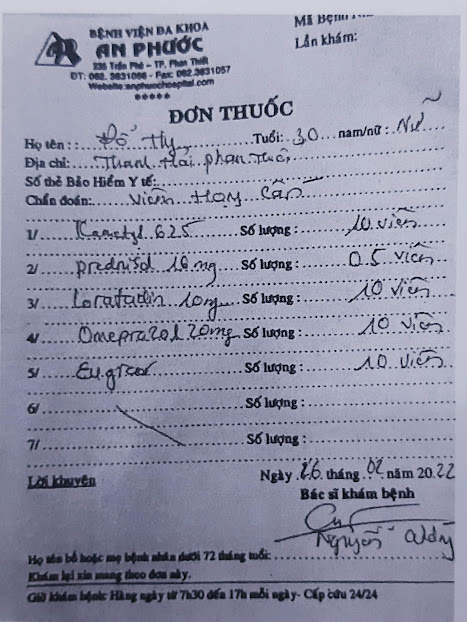 BỆNH VIỆN ĐA KHOA
AN PHƯỚC
235 Trần Phú – TP. Phan Thiết
ĐT: 062. 3831056 - Fax: 062.3831057
Website:anphuochospital.com
*****
Mã Bệnh
Lần khám:
ĐƠN THUỐC
Họ tên : : Đỗ Thy Tuổi: 30 nam/nữ : Nữ
Địa chỉ: Thanh Hải phan thiết
Số thẻ Bảo Hiểm Y tế:
Chẩn đoán: Viêm Họng Cấp
1/ 625 Số lượng : 10 viên
2/ prednisol 10 mg Số lượng : 0.5 viên
3/ Loratadin 10mg Số lượng : 10 viên
4/ Omeprazol 20mg Số lượng : 10 viên
5/ Số lượng : 10 viên
6/ Số lượng :
7/ Số lượng :
Lời khuyên
Ngày 26 tháng 02 năm 2022
Bác sĩ khám bệnh
Nguyễn
Họ tên bố hoặc mẹ bệnh nhân dưới 72 tháng tuổi:
Khám lại xin mang theo đơn này.
Giờ khám bệnh: Hàng ngày từ 7h30 đến 17h mỗi ngày- Cấp cứu 24/24